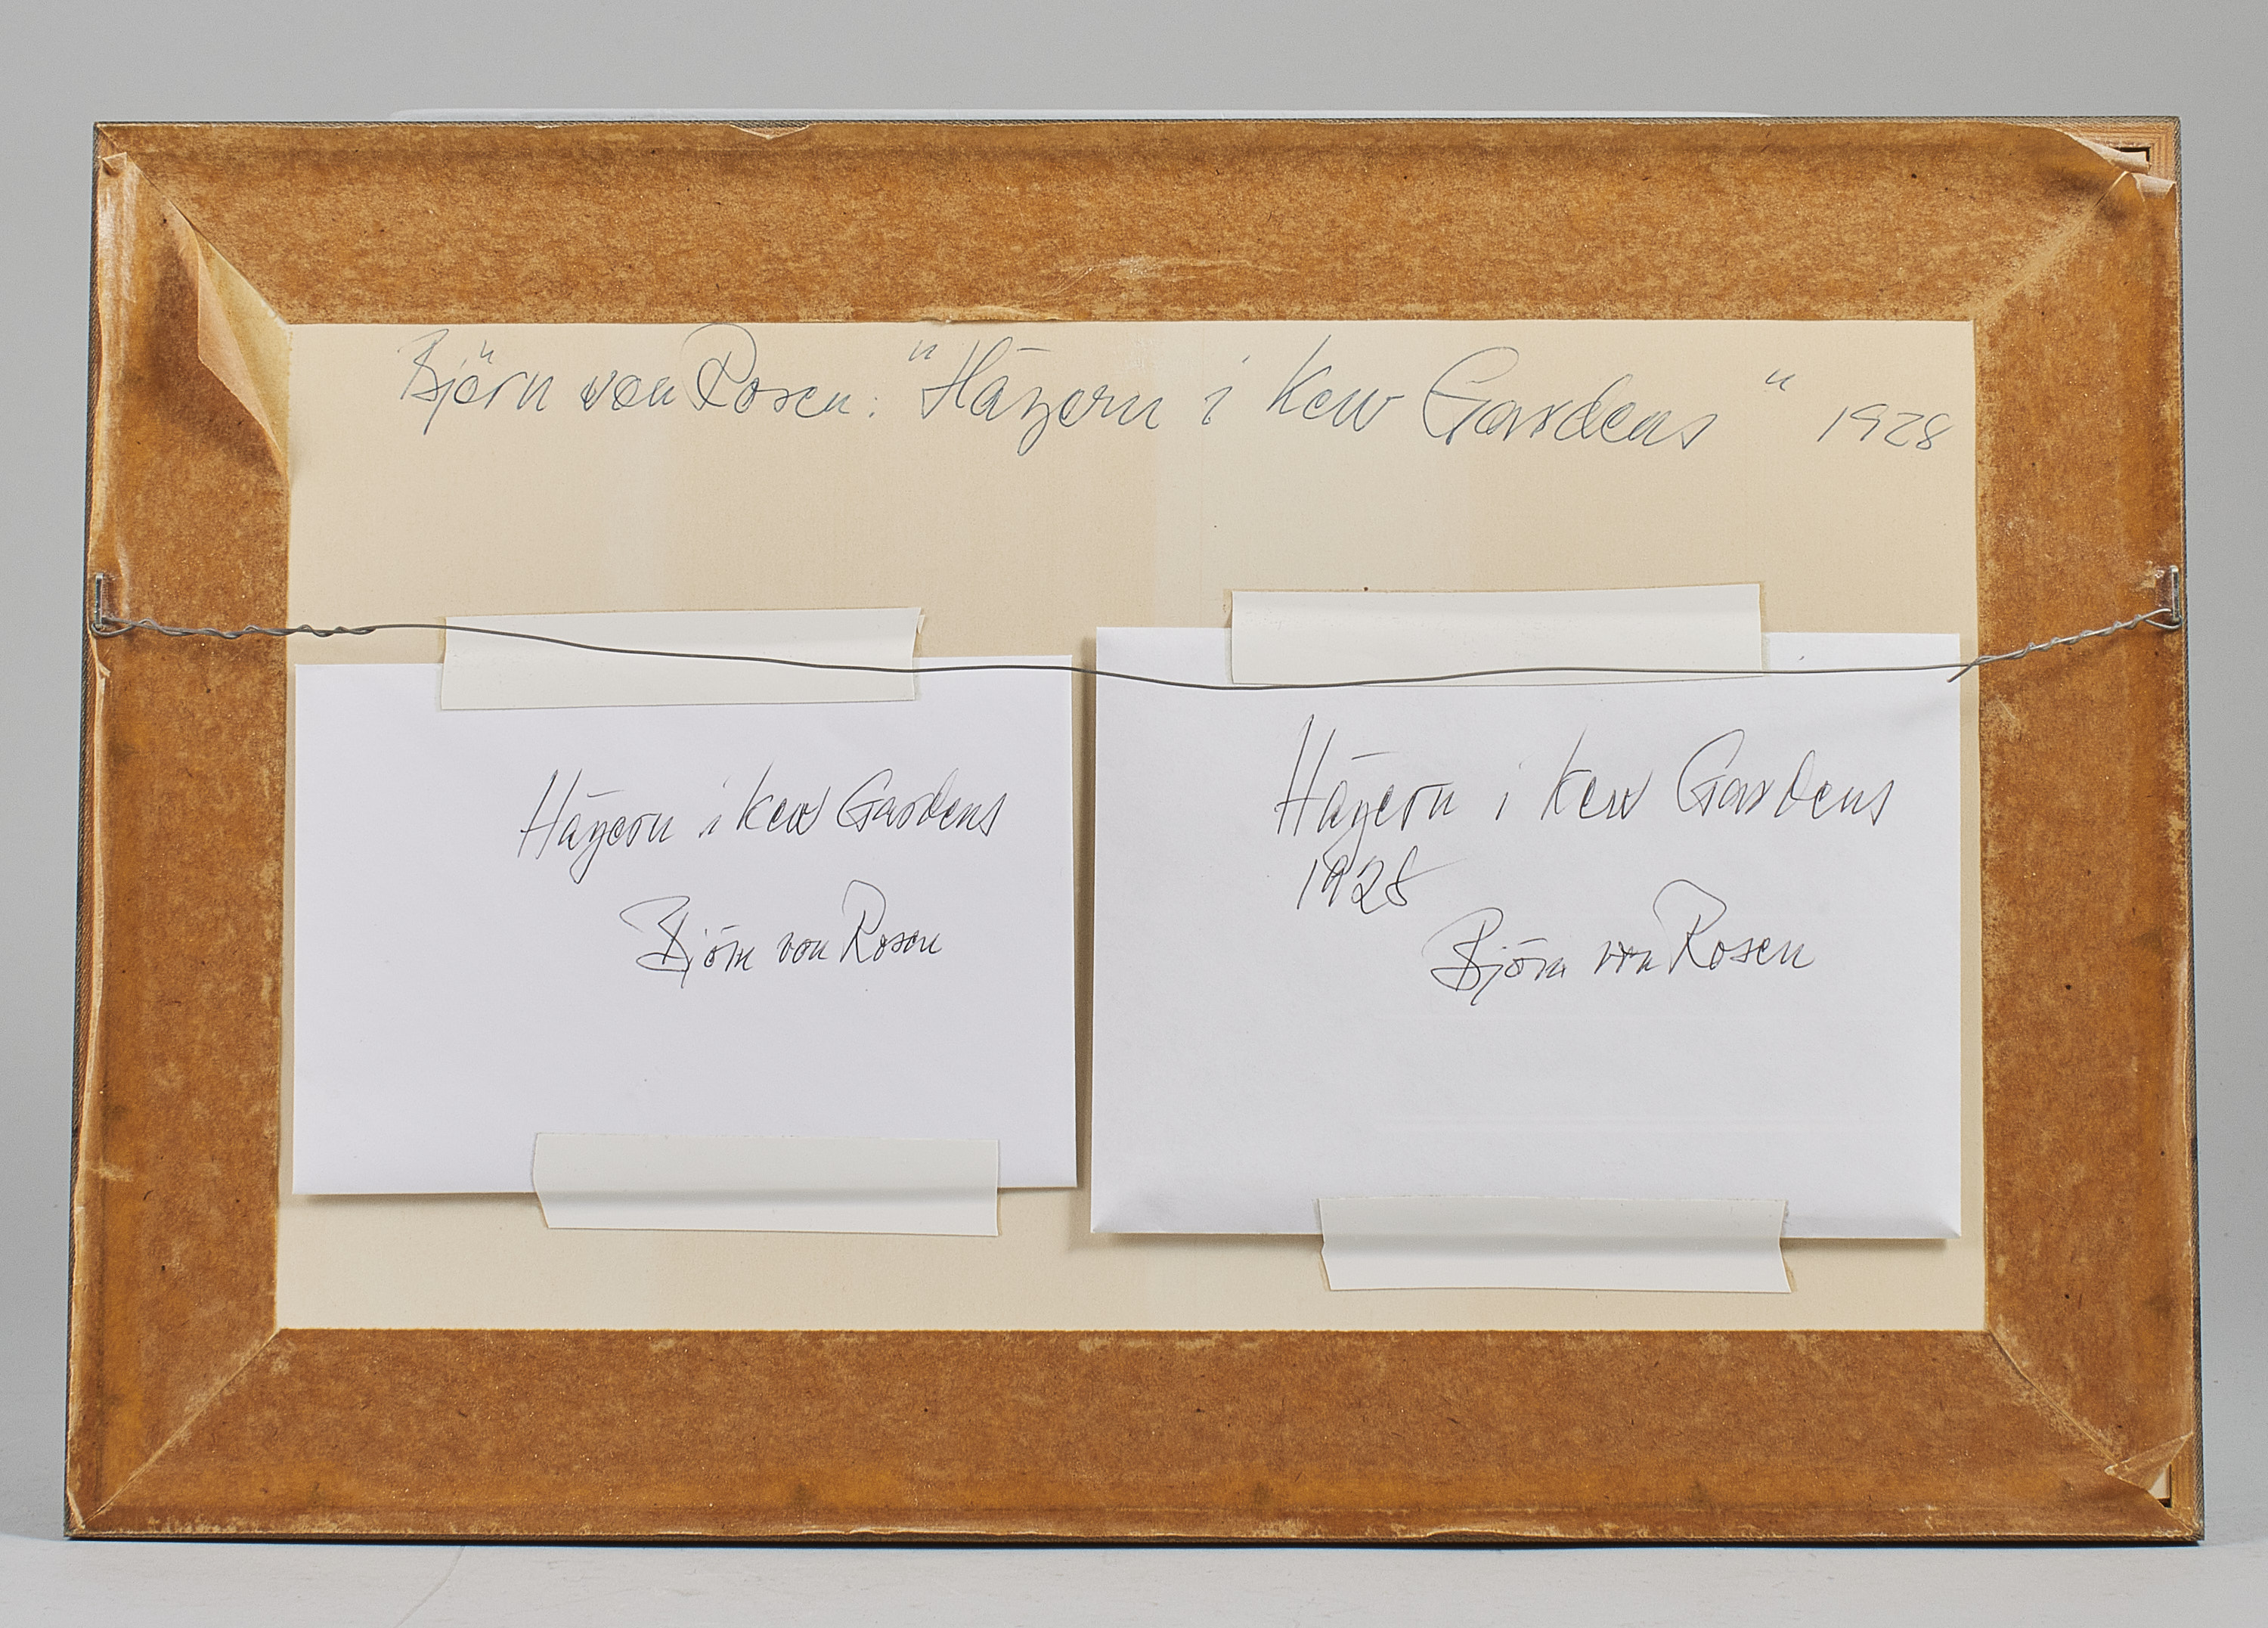 Björn von Rosen: "Hägern i Kew Gardens" 1928
Hägern i Kew Gardens
Björn von Rosen
Hägern i Kew Gardens
1928
Björn von Rosen